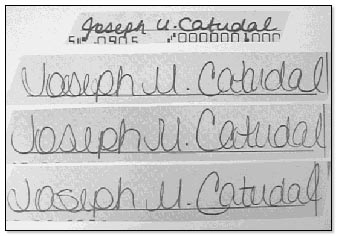 Joseph U. Catudal
5⑈ 0905 ⑈0000001000
Joseph U. Catudal
Joseph U. Catudal
Joseph U. Catudal